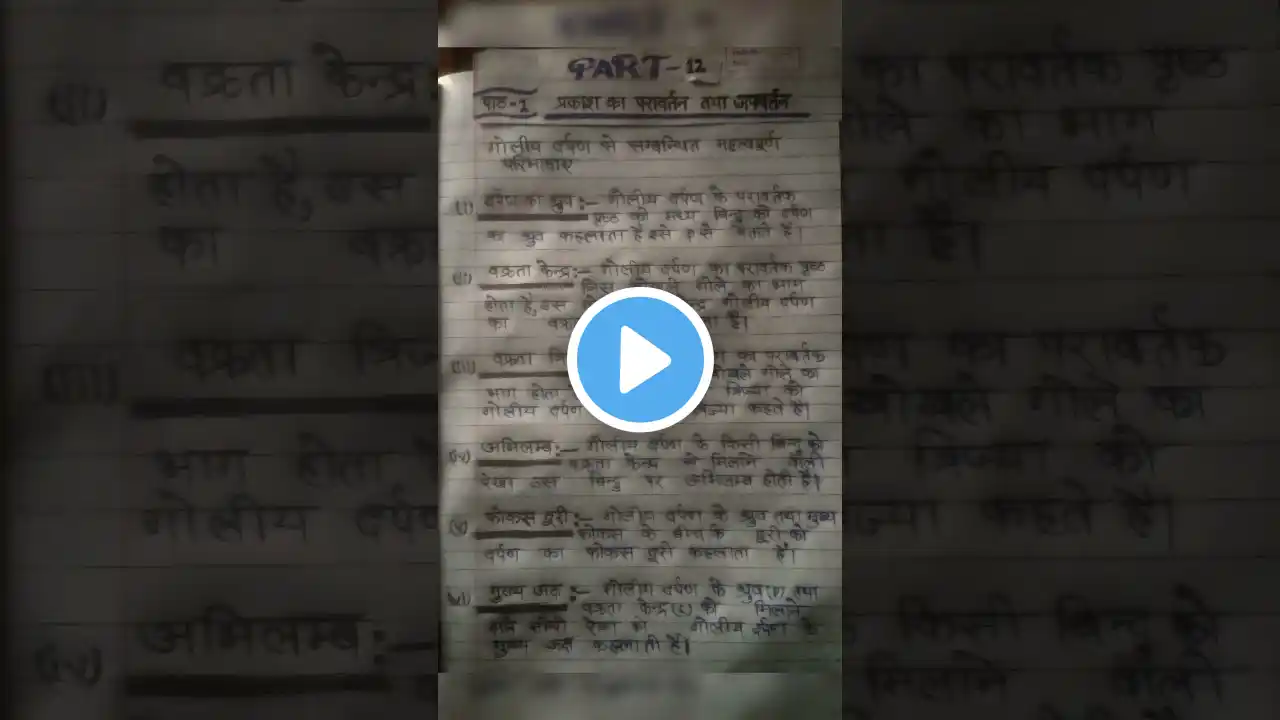 PART-12
पाठ-1 प्रकाश का परावर्तन तथा अपवर्तन
गोलीय दर्पण से सम्बन्धित महत्वपूर्ण
परिभाषाएं
(i) दर्पण का ध्रुव :- गोलीय दर्पण के परावर्तक
पृष्ठ को मध्य बिन्दु को दर्पण
का ध्रुव कहलाता है इसे P से है।
(ii) वक्रता केन्द्र :- गोलीय दर्पण का परावर्तक पृष्ठ
जिस गोले का भाग
होता है, उस गोलीय दर्पण
का है।
(iii) वक्रता का परावर्तक
खोखले गोले का
भाग होता त्रिज्या को
गोलीय दर्पण कहते है।
(iv) अभिलम्ब :- गोलीय दर्पण के किसी बिन्दु को
वक्रता केन्द्र से मिलाने वाली
रेखा उस बिन्दु पर अभिलम्ब होती है।
(v) फोकस दूरी :- गोलीय दर्पण के ध्रुव तथा मुख्य
फोकस के बीच कि दूरी को
दर्पण का फोकस दूरी कहलाता है।
(vi) मुख्य अक्ष :- गोलीय दर्पण के ध्रुव (P) तथा
वक्रता केन्द्र (C) को मिलाने
वाले सीधी रेखा को गोलीय दर्पण के
मुख्य अक्ष कहलाती है।